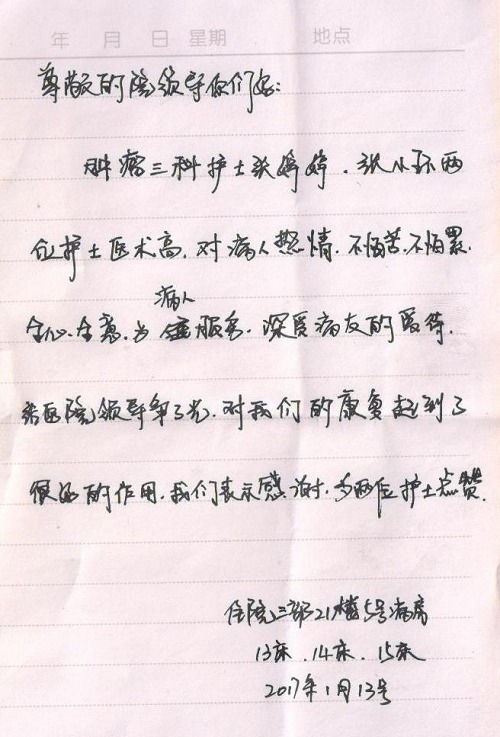 年 月 日 星期 地点
尊敬的院领导你们好:
肿瘤三科护士张婷婷、张小环两
位护士医术高,对病人热情,不怕苦,不怕累.
病人
全心全意,为 服务,深受病友的爱待,
给医院领导争了光,对我们的康复起到了
很好的作用,我们表示感谢,为两位护士点赞.
住院三部21楼5号病房
13床、14床、15床
2017年1月13号